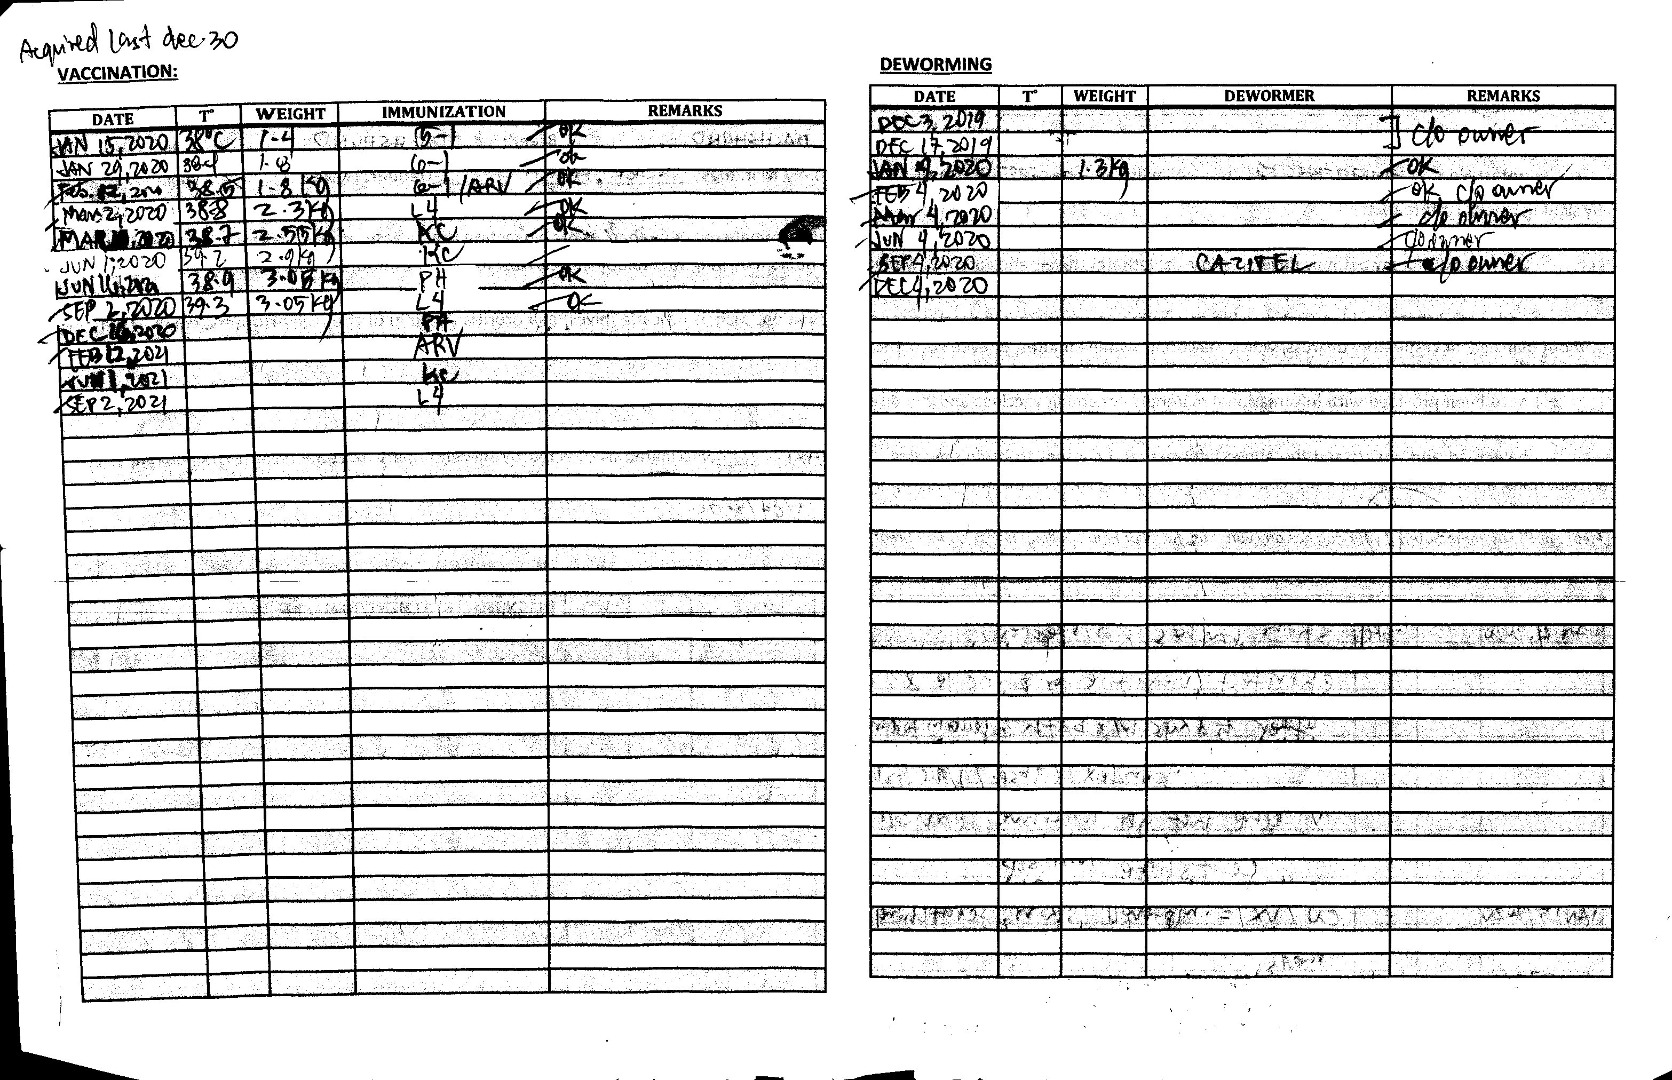 Acquired last dec. 30
VACCINATION:
DATE T° WEIGHT IMMUNIZATION REMARKS
JAN 15, 2020 38°C 1.4 6-1 OK
JAN 29, 2020 1.8 6-1 ok
Feb. 38.5 1.8 Kg 6-1 /ARV OK
Mar. 2, 2020 38.8 2.3 Kg L4 OK
MAR 2020 38.7 2.55 Kg KC OK
JUN 1, 2020 39.2 2.9 Kg KC
JUN 38.9 3.05 Kg PH OK
SEP 2, 2020 39.3 3.05 Kg L4 OK
DEC 16, 2020 PH
FEB 12, 2021 ARV
JUN 1, 2021 KC
SEP 2, 2021 L4
DEWORMING
DATE T° WEIGHT DEWORMER REMARKS
DEC 3, 2019
DEC 17, 2019 c/o owner
JAN 4, 2020 1.3 Kg OK
FEB 4, 2020 OK c/o owner
Mar 4, 2020 c/o owner
JUN 4, 2020 c/o owner
SEP 4, 2020 CAZITEL c/o owner
DEC 4, 2020